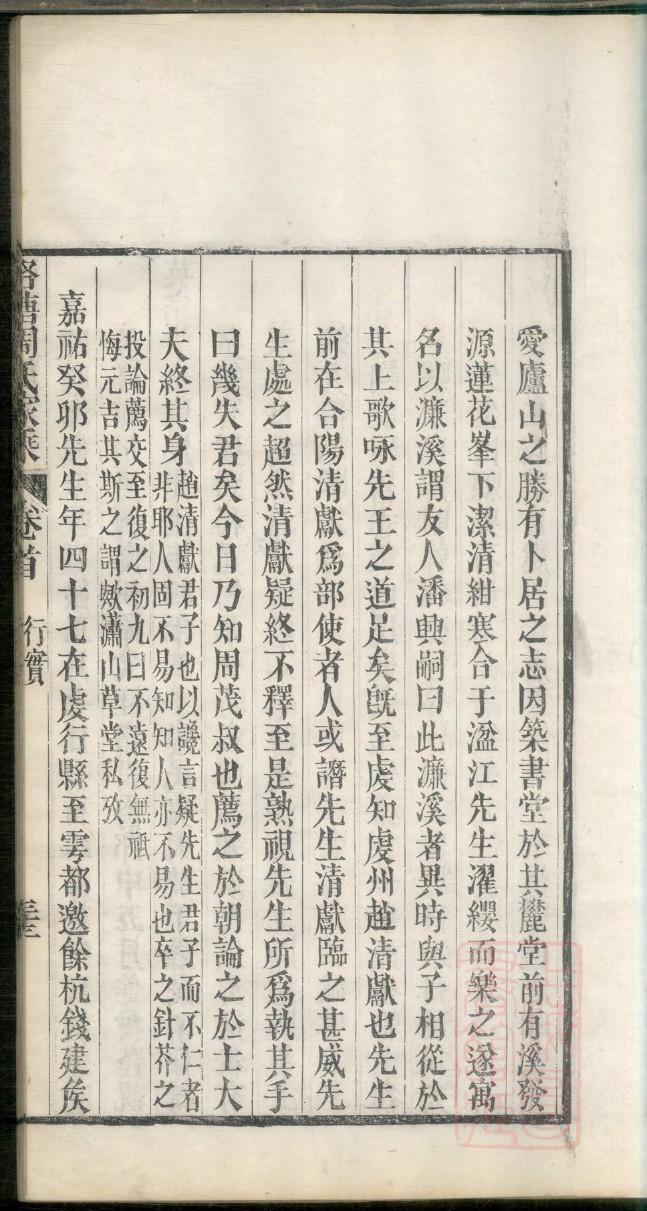 愛廬山之勝有卜居之志因築書堂於其麓堂前有溪發
源蓮花峯下潔清紺寒合于湓江先生濯纓而樂之遂寓
名以濂溪謂友人潘興嗣曰此濂溪者異時與子相從於
其上歌咏先王之道足矣既至虔知虔州趙清獻也先生
前在合陽清獻爲部使者人或譖先生清獻臨之甚威先
生處之超然清獻疑終不釋至是熟視先生所爲執其手
曰幾失君矣今日乃知周茂叔也薦之於朝論之於士大
夫終其身
趙清獻君子也以讒言疑先生君子而不仁者
非耶人固不易知知人亦不易也卒之針芥之
投論薦交至復之初九曰不遠復無祗
悔元吉其斯之謂歟瀟山草堂私攷
嘉祐癸卯先生年四十七在虔行縣至雩都邀餘杭錢建矦
周氏家乘 卷首 行實